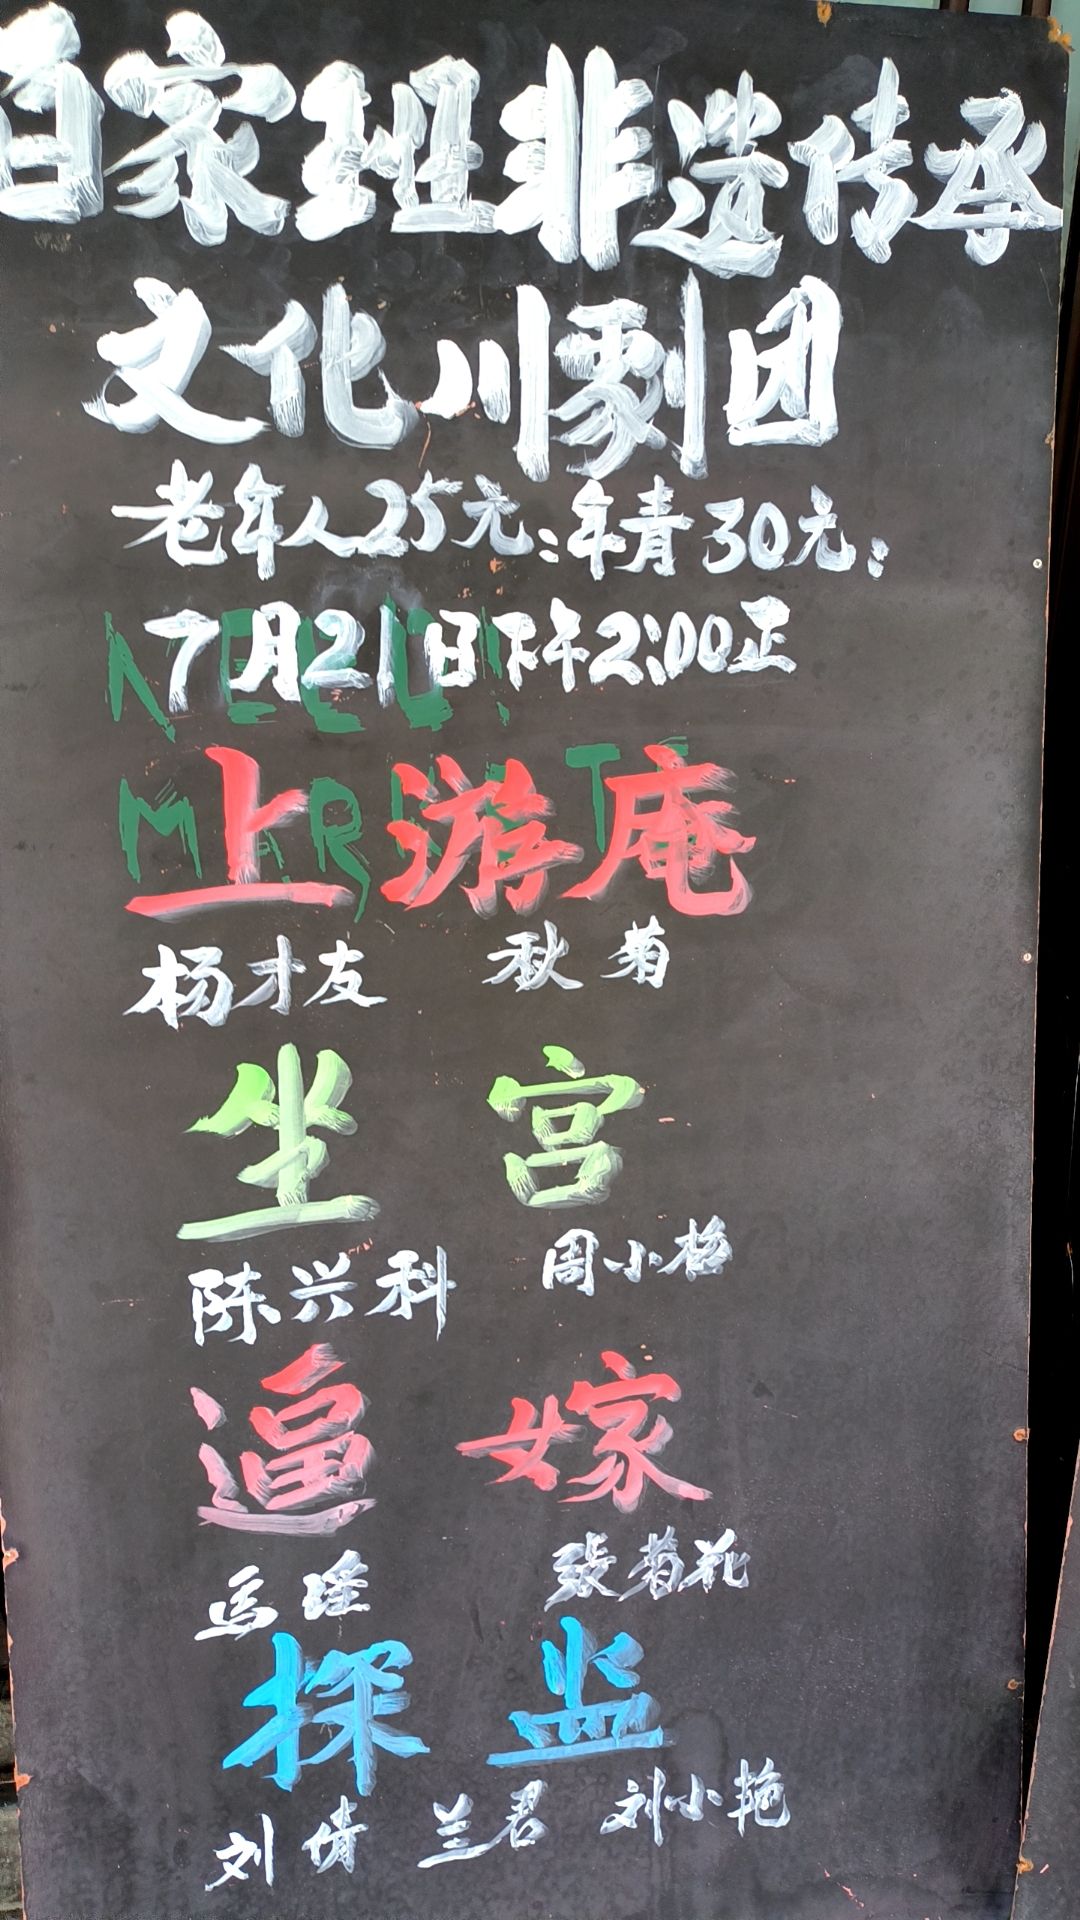 百家班非遗传承
文化川剧团
老年人25元:年青30元:
7月21日下午2:00正
上游庵
杨才友 秋菊
坐宫
陈兴科 周小梅
逼嫁
马瑶 張菊花
探监
刘倩 兰君 刘小艳